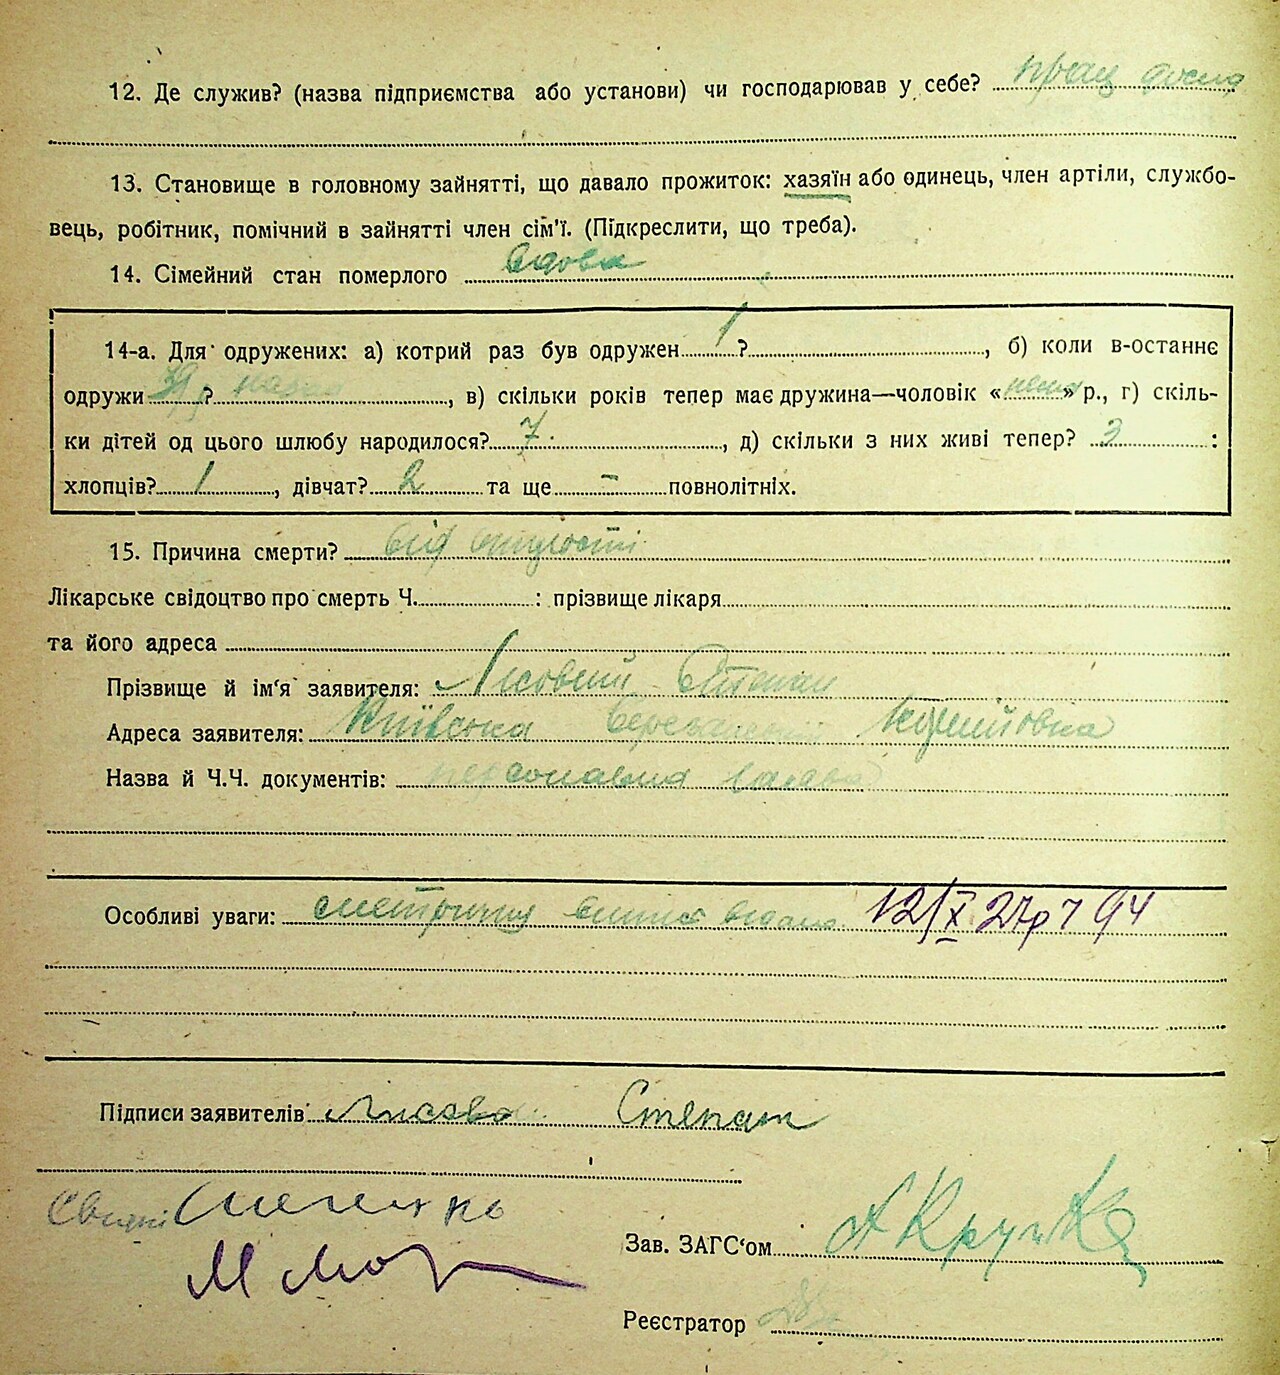 12. Де служив? (назва підприємства або установи) чи господарював у себе?
13. Становище в головному зайнятті, що давало прожиток: хазяїн або одинець, член артіли, службо-
вець, робітник, помічний в зайнятті член сім'ї. (Підкреслити, що треба).
14. Сімейний стан померлого вдова
14-а. Для одружених: а) котрий раз був одружен 1 ?, б) коли в-останнє
одружи 39 р ? назад, в) скільки років тепер має дружина—чоловік «нема» р., г) скіль-
ки дітей од цього шлюбу народилося? 7, д) скільки з них живі тепер? 3 :
хлопців? 1, дівчат? 2 та ще – повнолітніх.
15. Причина смерти? від
Лікарське свідоцтво про смерть Ч. : прізвище лікаря
та його адреса
Прізвище й ім'я заявителя: Лісовий Степан
Адреса заявителя: Київська
Назва й Ч.Ч. документів: персональна
Особливі уваги: метричний витяг видано 12/X 27р
Підписи заявителів Степан
Свідкі
Зав. ЗАГС'ом
Реєстратор